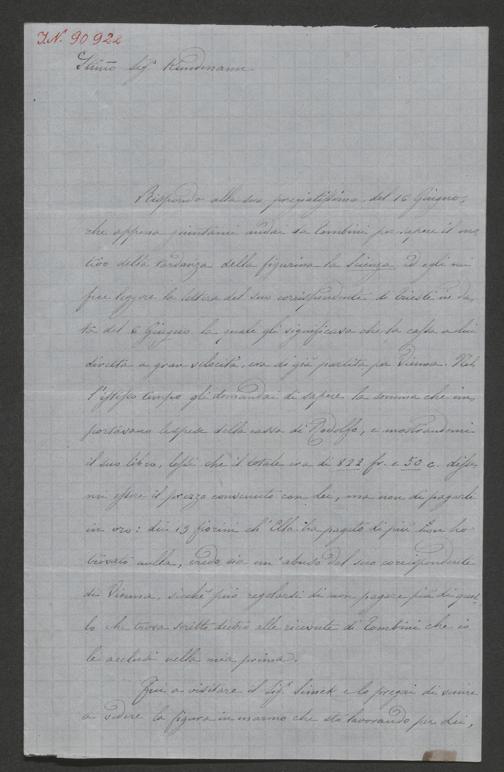 I.N. 90922
Stimo Sigr. Kundmann
Rispondo alla sua pregiatissima del 16 Giugno,
che appena giuntami andai da Tombini per sapere il mo-
tivo della tardanza della figurina la Scienza, ed egli mi
fece leggere la lettera del suo corrispondente di Trieste in da-
ta del 6 Giugno la quale gli significava che la cassa a lui
diretta a gran velocità, era di già partita per Vienna. Nel
l'istesso tempo gli domandai di sapere la somma che im-
portavano le spese della cassa di Rodolfo, e mostrandomi
il suo libro, lessi che il totale era di 822 fr. e 50 c. disse-
mi essere il prezzo convenuto con lei, ma non di pagarle
in oro: dei 13 fiorini ch'Ella ha pagato di più non ho
trovato nulla, credo sia un'abuso del suo corrispondente
di Vienna, sicchè può regolarsi di non pagare più di quel-
lo che trova scritto dietro alle ricevute di Tombini che io
le acclusi nella mia prima.
Fui a visitare il Sigr. Simek e lo pregai di venire
a vedere la figura in marmo che sto lavorando per Lei,